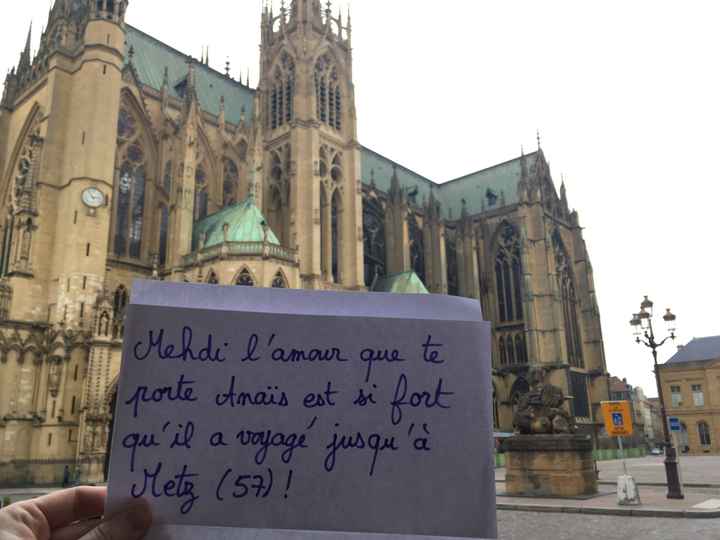 Mehdi l'amour que te
porte Anaïs est si fort
qu'il a voyagé jusqu'à
Metz (57) !